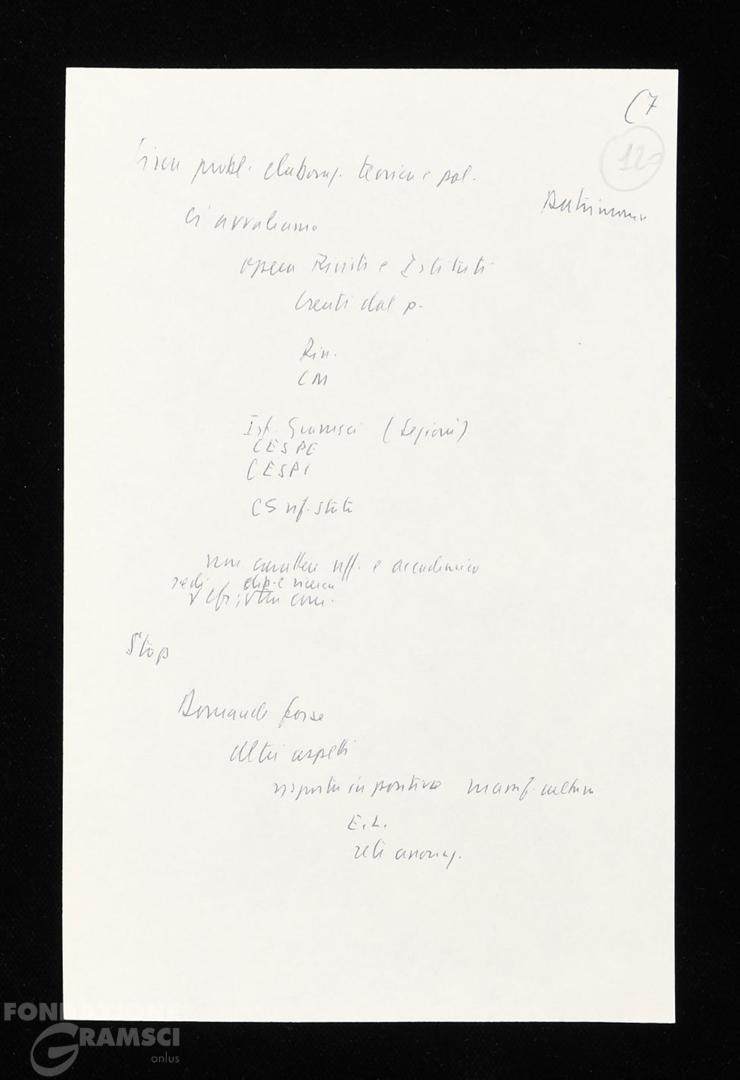 (7
12
probl. elaboraz. teorica e pol.
ci avvaliamo
opera Riviste e Istituti
creati dal p.
Rin.
CM
Ist. Gramsci (Sezioni)
CESPE
CESPI
CS rif. stato
non carattere uff. e accademico
sedi e ricerca
Stop
Domande forse
altri aspetti
risposta in positivo manif. cultura
E.L.
reti
FON
GRAMSCI
onlus